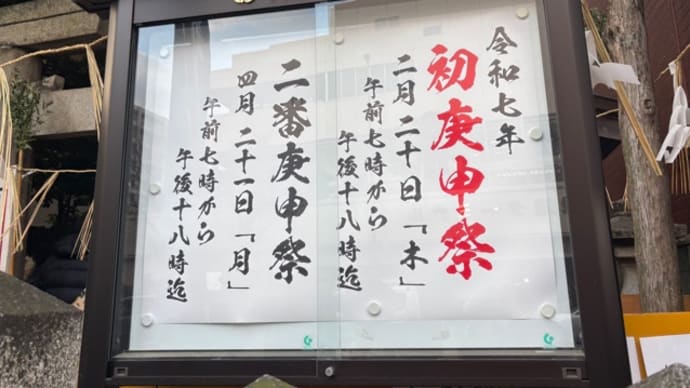 令和七年
初庚申祭
二月二十日「木」
午前七時から
午後十八時迄
二番庚申祭
四月二十一日「月」
午前七時から
午後十八時迄